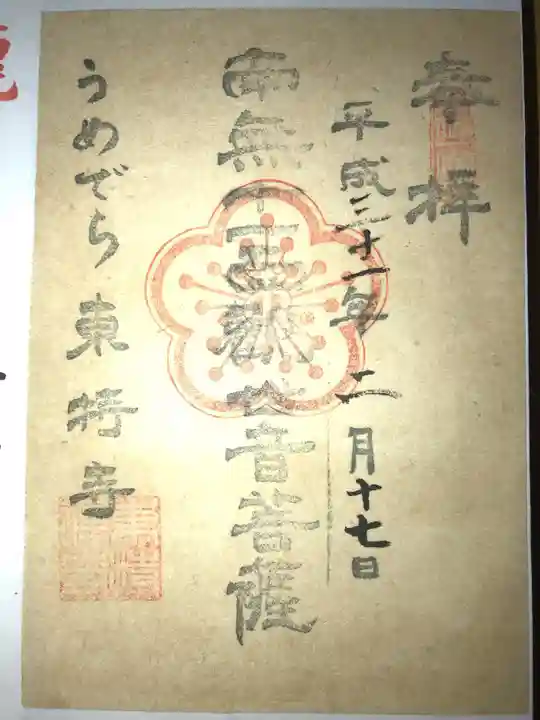 奉拝
平成三十一年 二月十七日
南無十一面観世音菩薩
うめでら 東持寺